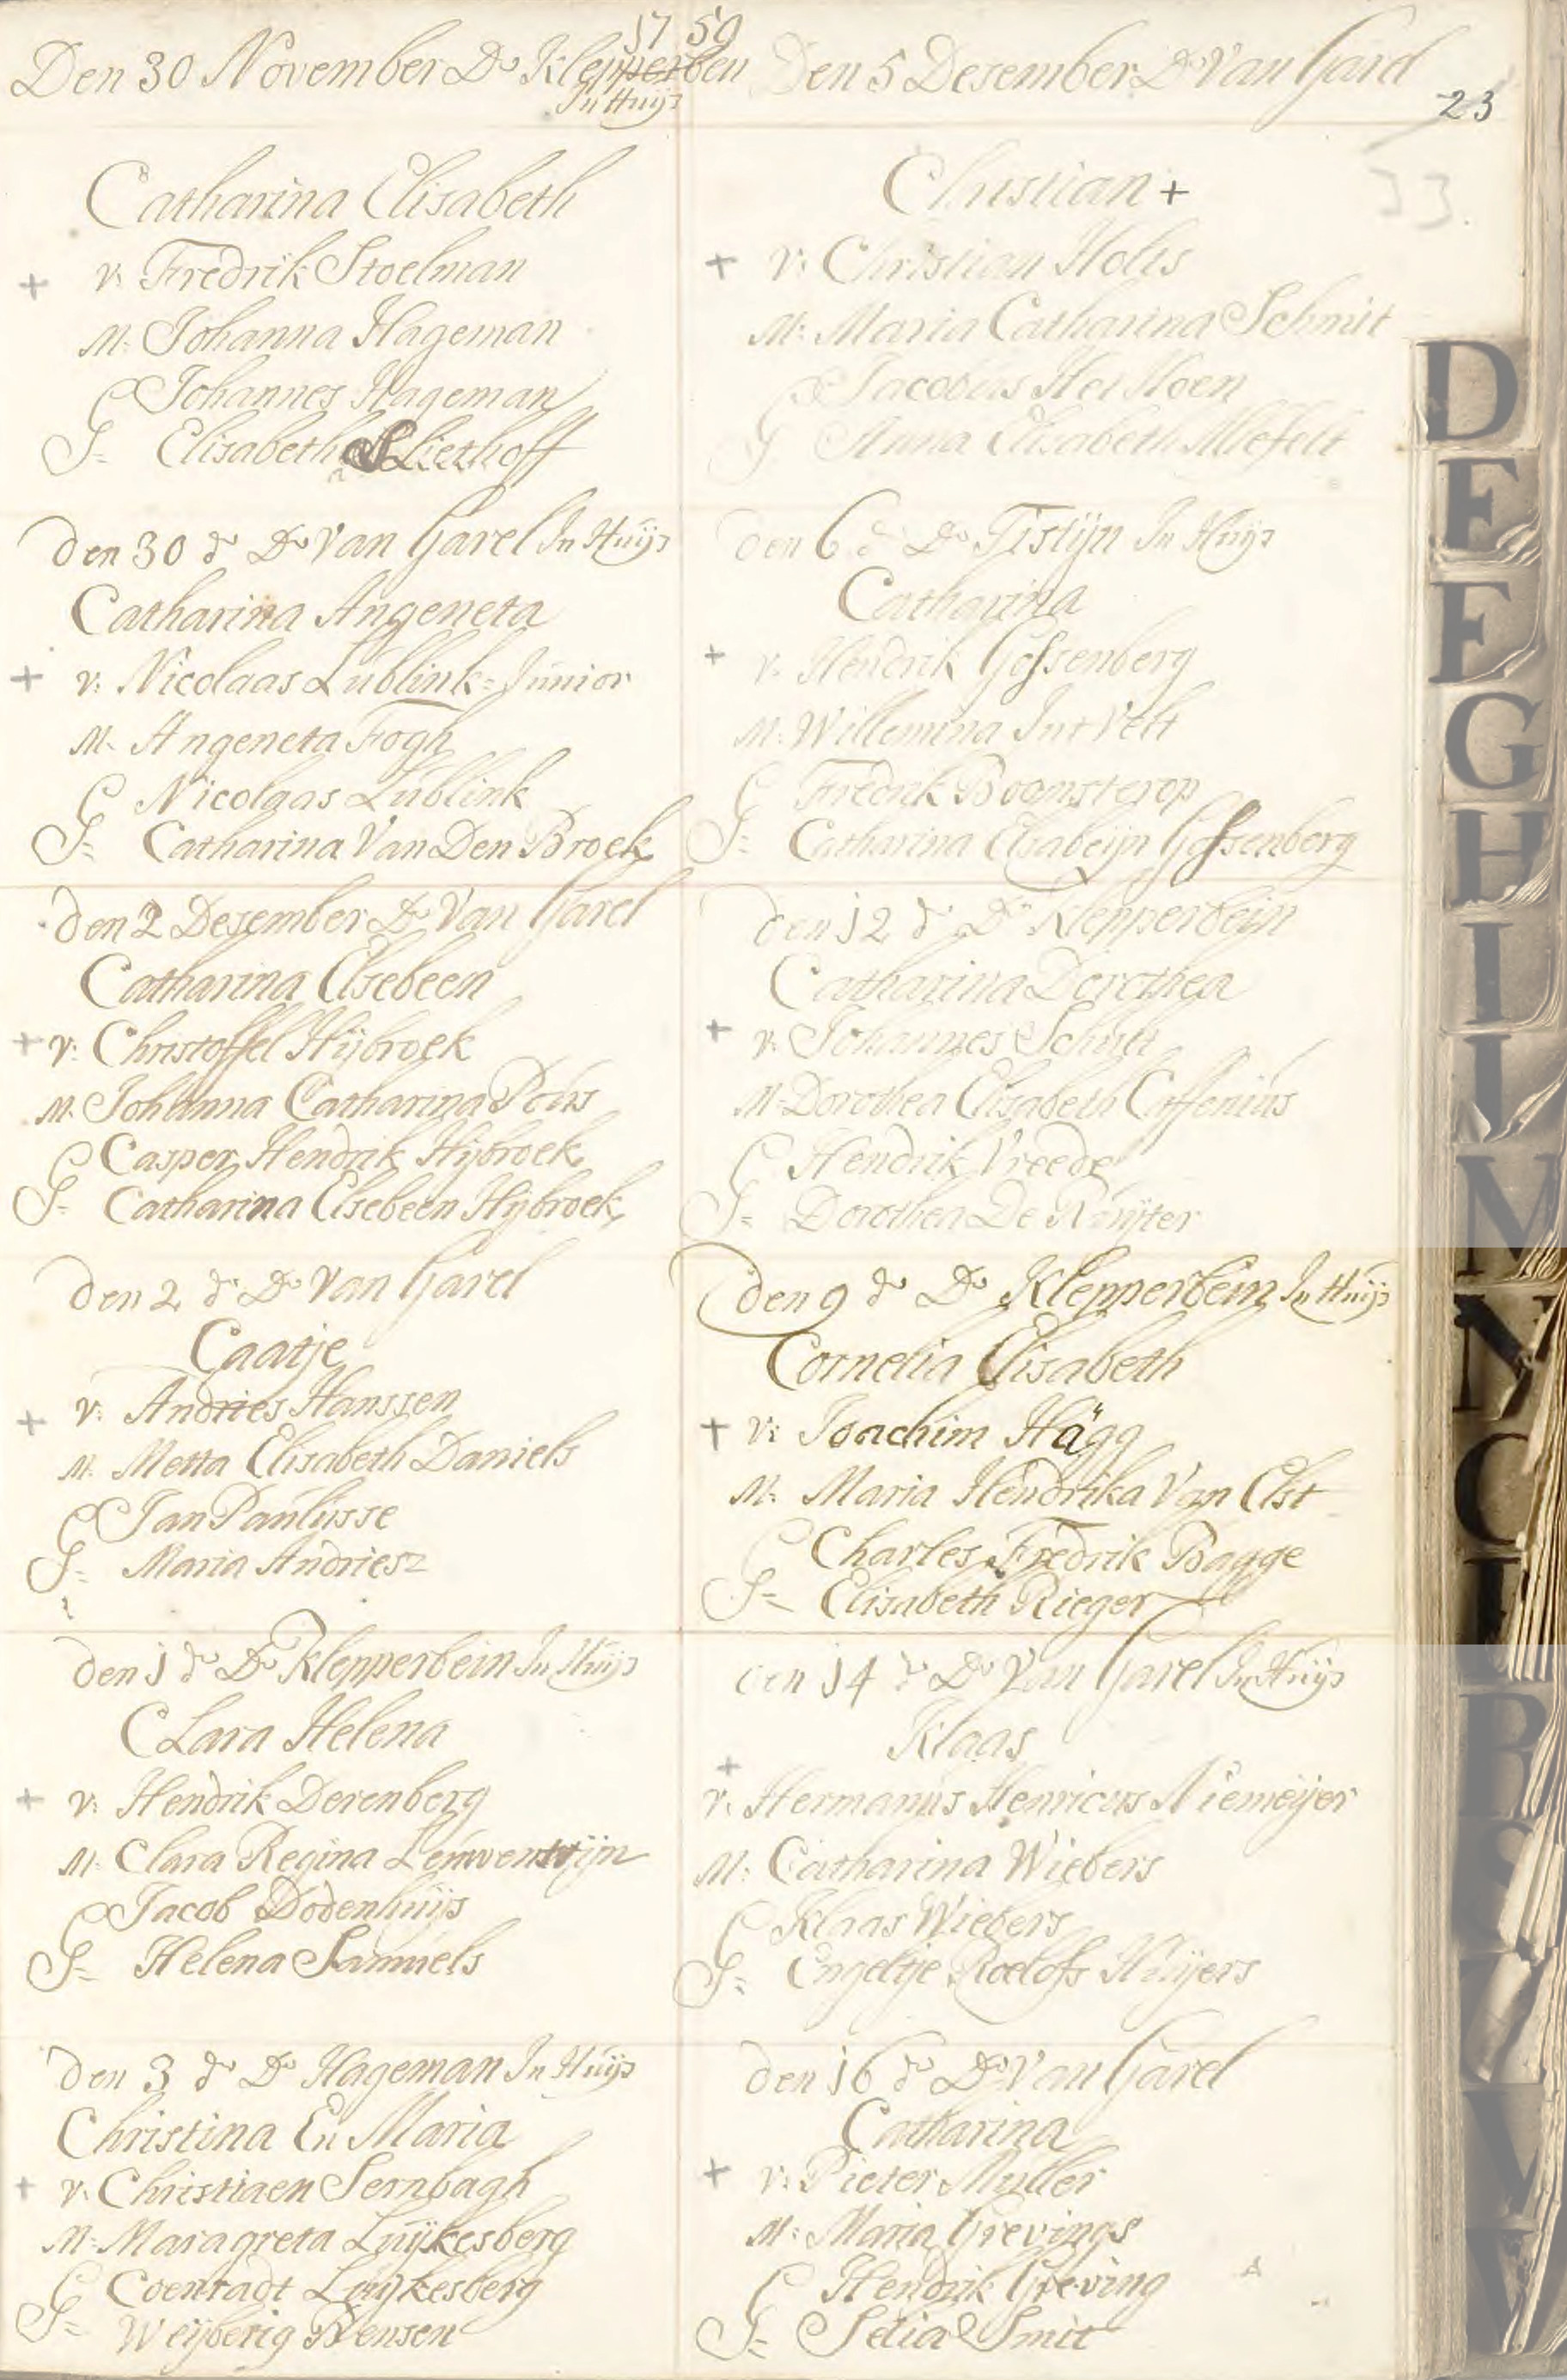 1759
Den 30 November Do Klepperben
In Huijs
Catharina Elisabeth
v: Fredrik Stoelman
M: Johanna Hageman
G Johannes Hageman
G= Elisabeth Slierhoff
den 30 do Do Van Garel In Huijs
Catharina Angeneta
v: Nicolaas Lublink=Junior
M. Angeneta Fogh
G Nicolaas Lublink
G= Catharina Van Den Broek
den 2 Desember Do Van Garel
Catharina Elsebeen
v: Christoffel Hijbroek
M. Johanna Catharina Pohs
G Casper Hendrik Hijbroek
G= Catharina Elsebeen Hijbroek
den 2 do Do Van Garel
Caatje
v: Andries Hanssen
M. Metta Elisabeth Daniels
G Jan Paulusse
G= Maria Andriesz
den 1 do Do Klepperbein In Huijs
CLara Helena
v: Hendrik Derenberg
M: Clara Regina
G Jacob Dodenhuijs
G= Helena Samuels
den 3 do Do Hageman In Huijs
Christina En Maria
v. Christiaen Sernbagh
M= Maragreta Luijkesberg
G Coenradt Luijkesberg
G= Weijberig Bensen
Den 5 Desember Do Van Garel
23
33.
Christian +
v: Christian Holts
M: Maria Catharina Schmit
G Jacobus Het Hoen
G Anna Elisabeth Allefelt
den 6 do Do Tistijn In Huijs
Catharina
v. Hendrik Gossenberg
M: Willemina Int Velt
G Fredrik Boomsterop
G= Catharina Elsabeijn Gossenberg
den 12 do Do Klepperbein
Catharina Dorothea
v. Johannes Schult
M. Dorothea Elisabeth Caffenius
G Hendrik Vreede
G= Dorothea De Ruijter
den 9 do Do Klepperbein In Huijs
Cornelia Elisabeth
v: Joachim Hägg
M: Maria Hendrika Van Elst
G Charles Fredrik Bagge
G= Elisabeth Rieger
den 14 do Do Van Garel In Huijs
Klaas
v. Hermanus Henricus Niemeijer
M: Catharina Wiebers
G Klaas Wiebers
G= Engeltje Roelofs Huijers
den 16 do Do Van Garel
Catharina
v: Pieter Muller
M: Maria Grevings
G Hendrik Greving
G= Setia Smit
D
E
F
G
H
I
L
M
N
O
P
R
S
V
W